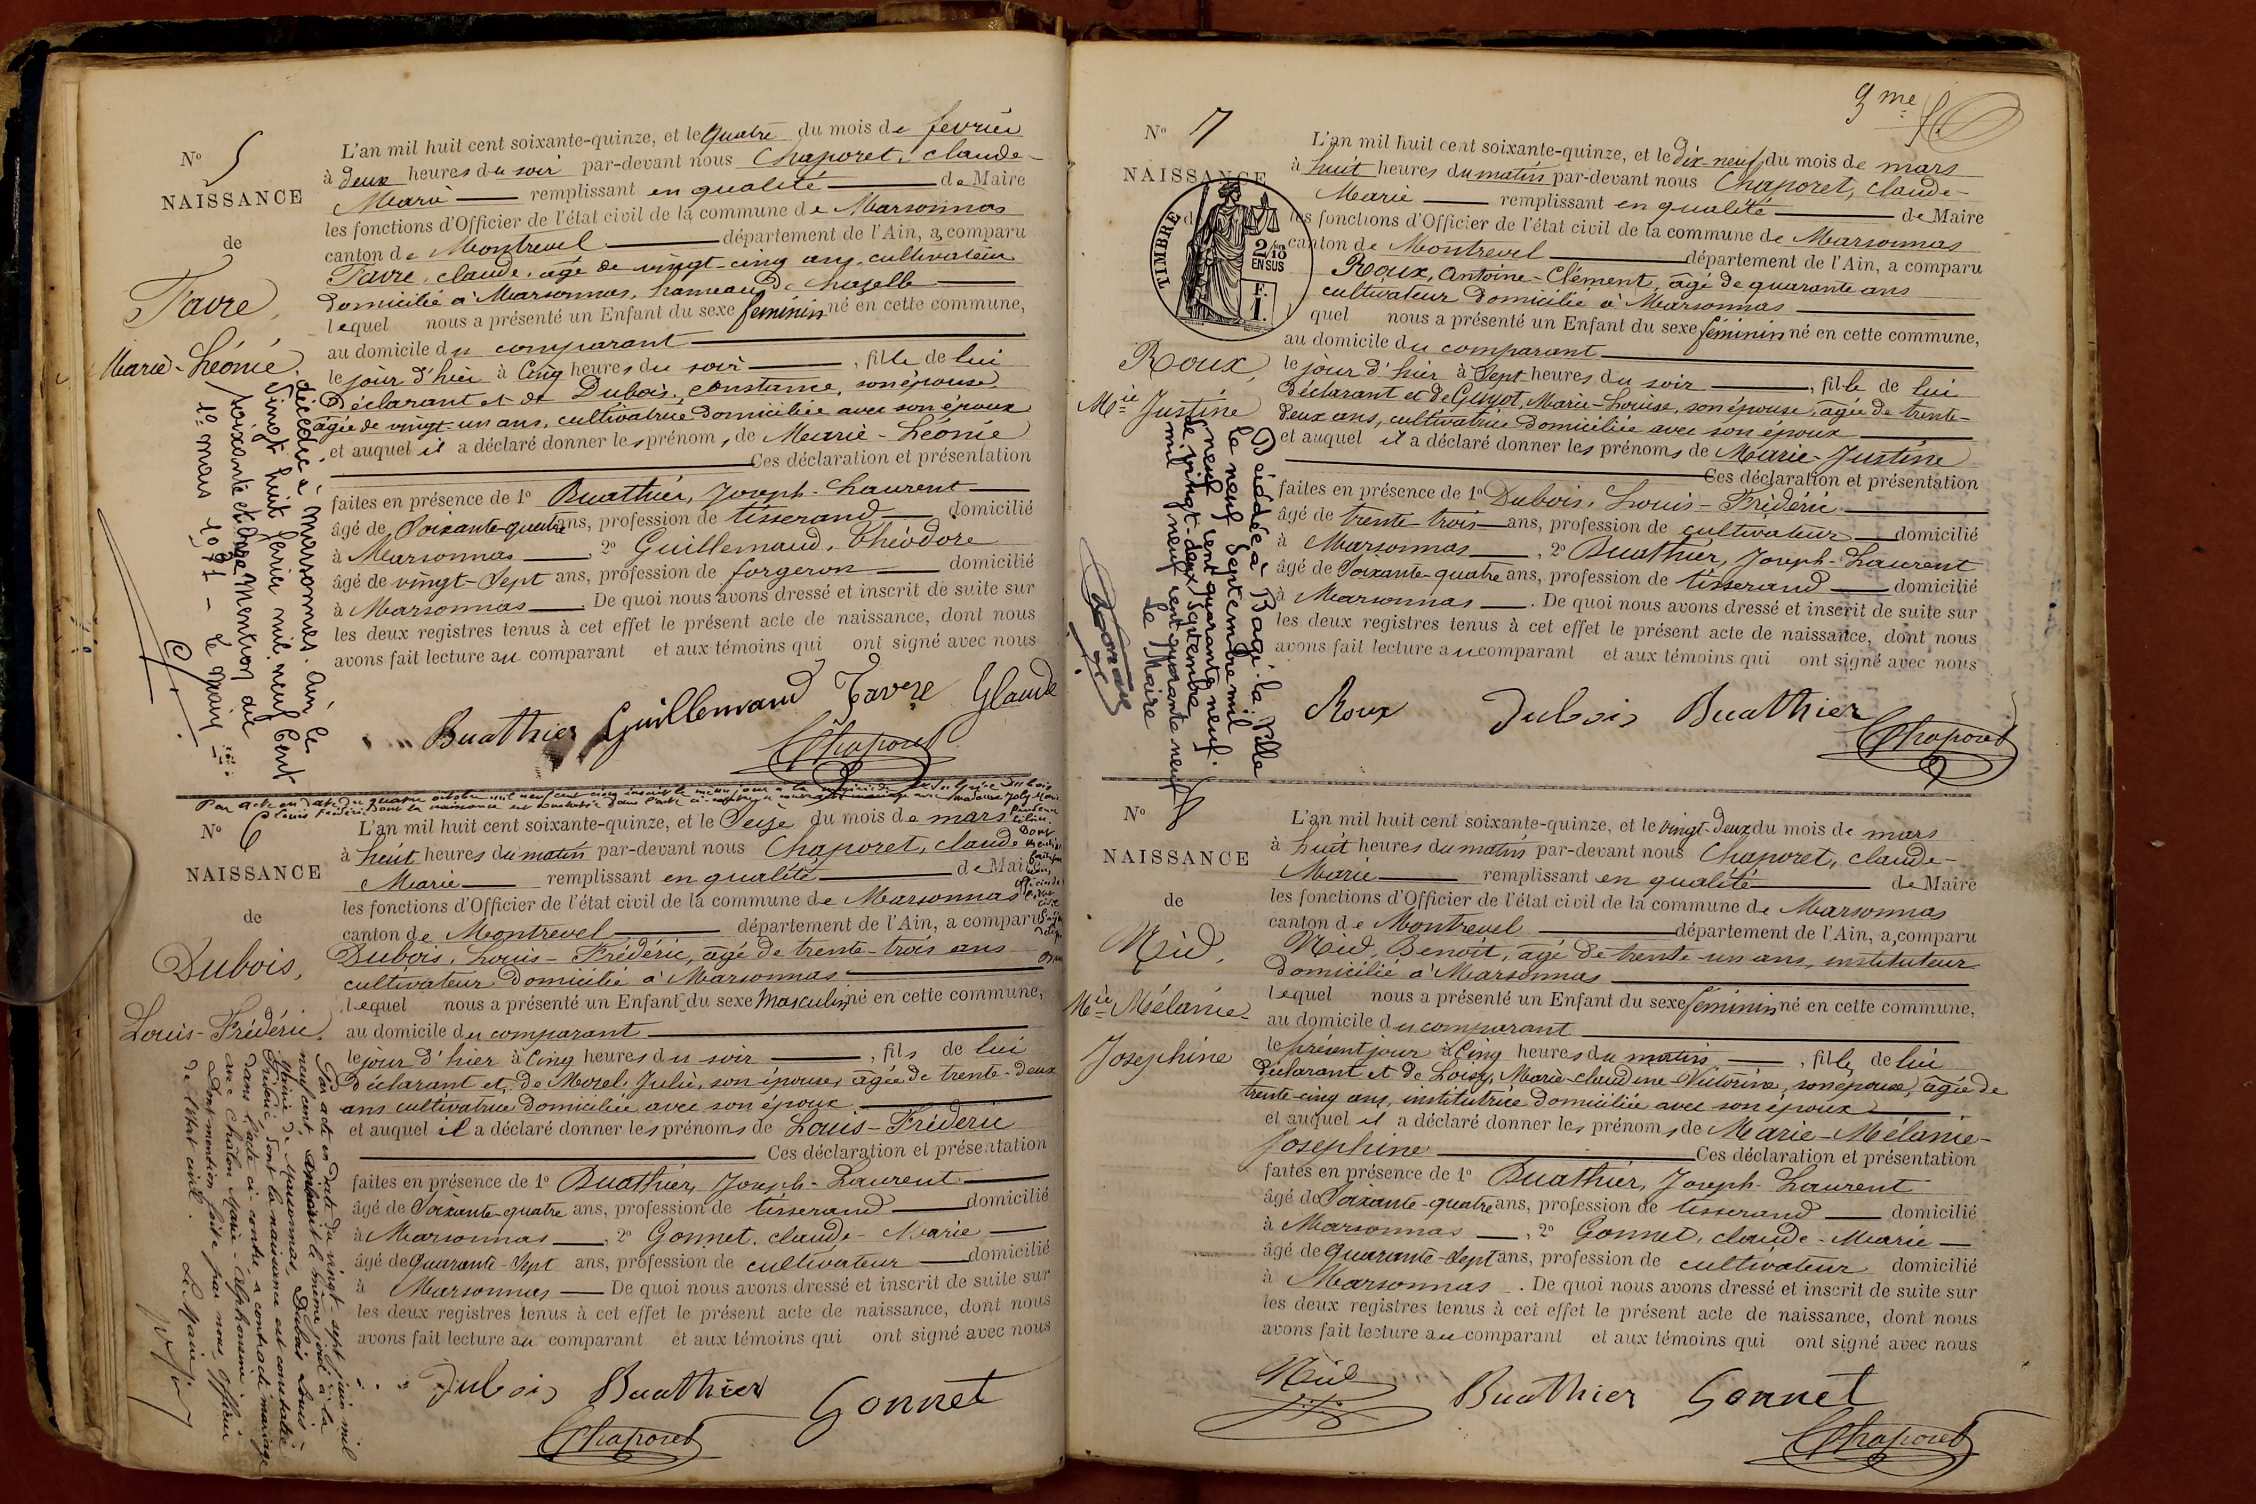 N° 5
NAISSANCE
de
Favre,
Marie-Léonie.
L'an mil huit cent soixante-quinze, et le quatre du mois de février
à deux heures du soir par-devant nous Chaporet, claude-
Marie remplissant en qualité de Maire
les fonctions d'Officier de l'état civil de la commune de Marsonnas
canton de Montrevel département de l'Ain, a comparu
Favre, claude, âgé de vingt-cinq ans, cultivateur
domicilié à Marsonnas, hameau de chazelle
lequel nous a présenté un Enfant du sexe féminin né en cette commune,
au domicile du comparant
le jour d'hier à Cinq heures du soir , fille de lui
déclarant et de Dubois, constance, son épouse,
âgée de vingt-un ans, cultivatrice domiciliée avec son époux
et auquel il a déclaré donner les prénoms de Marie-Léonie
Ces déclaration et présentation
faites en présence de 1° Buathier, Joseph-Laurent
âgé de Soixante-quatre ans, profession de tisserand domicilié
à Marsonnas , 2° Guillemaud, Théodore
âgé de vingt-Sept ans, profession de forgeron domicilié
à Marsonnas . De quoi nous avons dressé et inscrit de suite sur
les deux registres tenus à cet effet le présent acte de naissance, dont nous
avons fait lecture au comparant et aux témoins qui ont signé avec nous
Buathier Guillemaud Favre Glaude
Chaporet
décédée à Marsonnas. Ain le
Vingt huit février mil neuf Cent
soixante et onze Mention du
1° mars 1971 - le Maire
Par acte en date du quatre octobre mil neuf cent cinq inscrit le même jour à la mairie de
N° 6
NAISSANCE
de
Dubois,
Louis-Frédéric.
L'an mil huit cent soixante-quinze, et le Seize du mois de mars
à huit heures du matin par-devant nous Chaporet, claude
Marie remplissant en qualité de Maire
les fonctions d'Officier de l'état civil de la commune de Marsonnas
canton de Montrevel département de l'Ain, a comparu
Dubois, Louis-Frédéric, âgé de trente-trois ans
cultivateur domicilié à Marsonnas
lequel nous a présenté un Enfant du sexe Masculin né en cette commune,
au domicile du comparant
le jour d'hier à Cinq heures du soir , fils de lui
déclarant et de Morel, Julie, son épouse, âgée de trente-deux
ans cultivatrice domiciliée avec son époux
et auquel il a déclaré donner les prénoms de Louis-Fréderic
Ces déclaration et présentation
faites en présence de 1° Buathier, Joseph-Laurent
âgé de Soixante-quatre ans, profession de tisserand domicilié
à Marsonnas , 2° Gonnet, claude-Marie
âgé de Quarante-Sept ans, profession de cultivateur domicilié
à Marsonnas De quoi nous avons dressé et inscrit de suite sur
les deux registres tenus à cet effet le présent acte de naissance, dont nous
avons fait lecture au comparant et aux témoins qui ont signé avec nous
Dubois Buathier Gonnet
Chaporet
Par acte en date du vingt-sept juin mil
neuf cent inscrit le même jour à la
Mairie de Marsonnas, Dubois Louis-
Frédéric dont la naissance est constatée
dans l'acte ci-contre, a contracté mariage
avec Châlon Marie-Alphonsine.
Dont mention faite par nous, Officier
de l'état civil. Le Maire,
9me
N° 7
NAISSANCE
de
TIMBRE
2/10
EN SUS
F.
1.
Roux,
Mie Justine
L'an mil huit cent soixante-quinze, et le dix-neuf du mois de mars
à huit heures du matin par-devant nous Chaporet, claude-
Marie remplissant en qualité de Maire
les fonctions d'Officier de l'état civil de la commune de Marsonnas
canton de Montrevel département de l'Ain, a comparu
Roux, Antoine-Clément, âgé de quarante ans
cultivateur domicilié à Marsonnas
quel nous a présenté un Enfant du sexe féminin né en cette commune,
au domicile du comparant
le jour d'hier à Sept heures du soir , fille de lui
déclarant et de Guyot, Marie-Louise, son épouse, âgée de trente-
deux ans, cultivatrice domiciliée avec son époux
et auquel il a déclaré donner les prénoms de Marie-Justine
Ces déclaration et présentation
faites en présence de 1° Dubois, Louis-Frédéric
âgé de trente-trois ans, profession de cultivateur domicilié
à Marsonnas , 2° Buathier, Joseph-Laurent
âgé de Soixante-quatre ans, profession de tisserand domicilié
à Marsonnas . De quoi nous avons dressé et inscrit de suite sur
les deux registres tenus à cet effet le présent acte de naissance, dont nous
avons fait lecture au comparant et aux témoins qui ont signé avec nous
Roux Dubois Buathier
Chaporet
Décédée à Bagé-la-Ville
le neuf Septembre mil
neuf cent quarante neuf.
Le vingt-deux Septembre
mil neuf cent quarante neuf
Le Maire
N° 8
NAISSANCE
de
Nid,
Mie Mélanie-
Josephine
L'an mil huit cent soixante-quinze, et le vingt-deux du mois de mars
à huit heures du matin par-devant nous Chaporet, claude-
Marie remplissant en qualité de Maire
les fonctions d'Officier de l'état civil de la commune de Marsonnas
canton de Montrevel département de l'Ain, a comparu
Nid, Benoît, âgé de trente-un ans, instituteur
domicilié à Marsonnas
lequel nous a présenté un Enfant du sexe féminin né en cette commune,
au domicile du comparant
le présent jour à Cinq heures du matin , fille de lui
déclarant et de Loisy, Marie-claudine-Victorine, son épouse, âgée de
trente-cinq ans, institutrice domiciliée avec son époux
et auquel il a déclaré donner les prénoms de Marie-Mélanie-
Josephine Ces déclaration et présentation
faites en présence de 1° Buathier, Joseph-Laurent
âgé de Soixante-quatre ans, profession de tisserand domicilié
à Marsonnas , 2° Gonnet, claude-Marie
âgé de Quarante-Sept ans, profession de cultivateur domicilié
à Marsonnas . De quoi nous avons dressé et inscrit de suite sur
les deux registres tenus à cet effet le présent acte de naissance, dont nous
avons fait lecture au comparant et aux témoins qui ont signé avec nous
Nid Buathier Gonnet
Chaporet